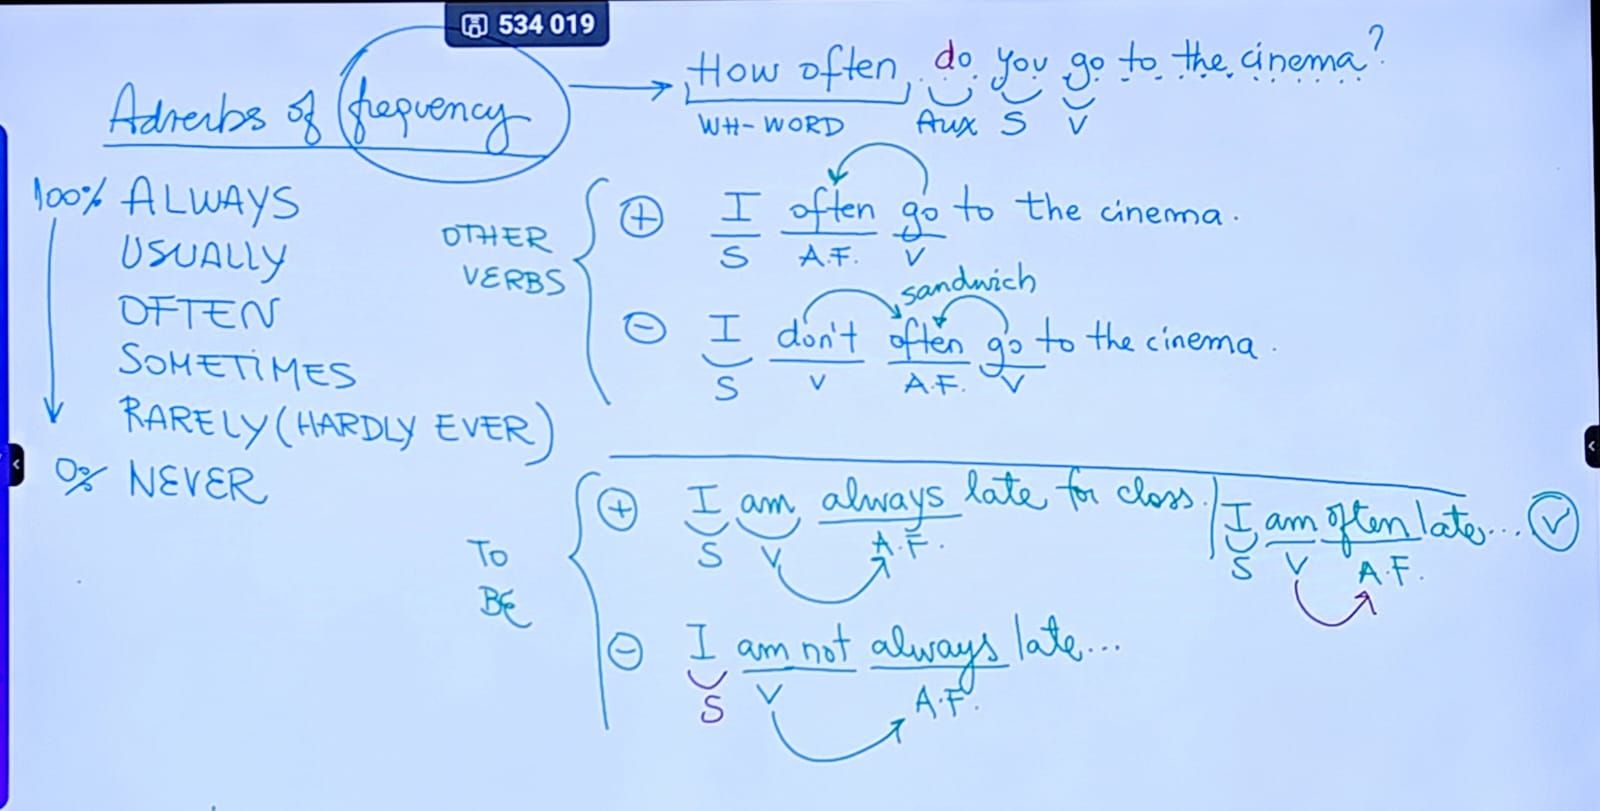 534 019
Adverbs of frequency → How often do you go to the cinema?
WH-WORD Aux S V
100% ALWAYS
USUALLY
OFTEN
SOMETIMES
RARELY (HARDLY EVER)
0% NEVER
OTHER
VERBS
+ I often go to the cinema.
S A.F. V
sandwich
- I don't often go to the cinema.
S V A.F. V
TO
BE
+ I am always late for class. | I am often late... V
S V A.F. S V A.F.
- I am not always late...
S V A.F.